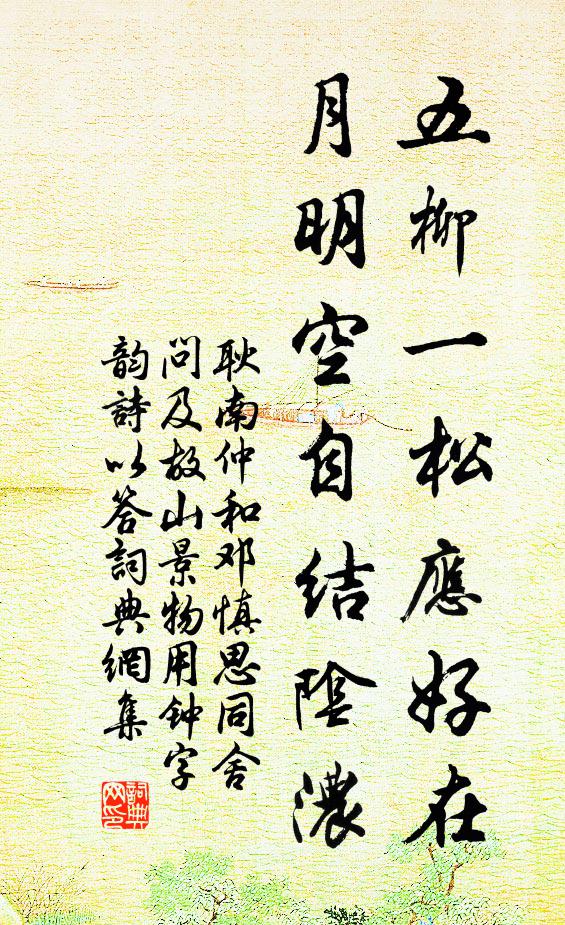 五柳一松應好在
月明空自结陰濃
耿南仲和邓慎思同舍
问及故山景物用钟字
韵詩以答詞典網集
詞典
网印